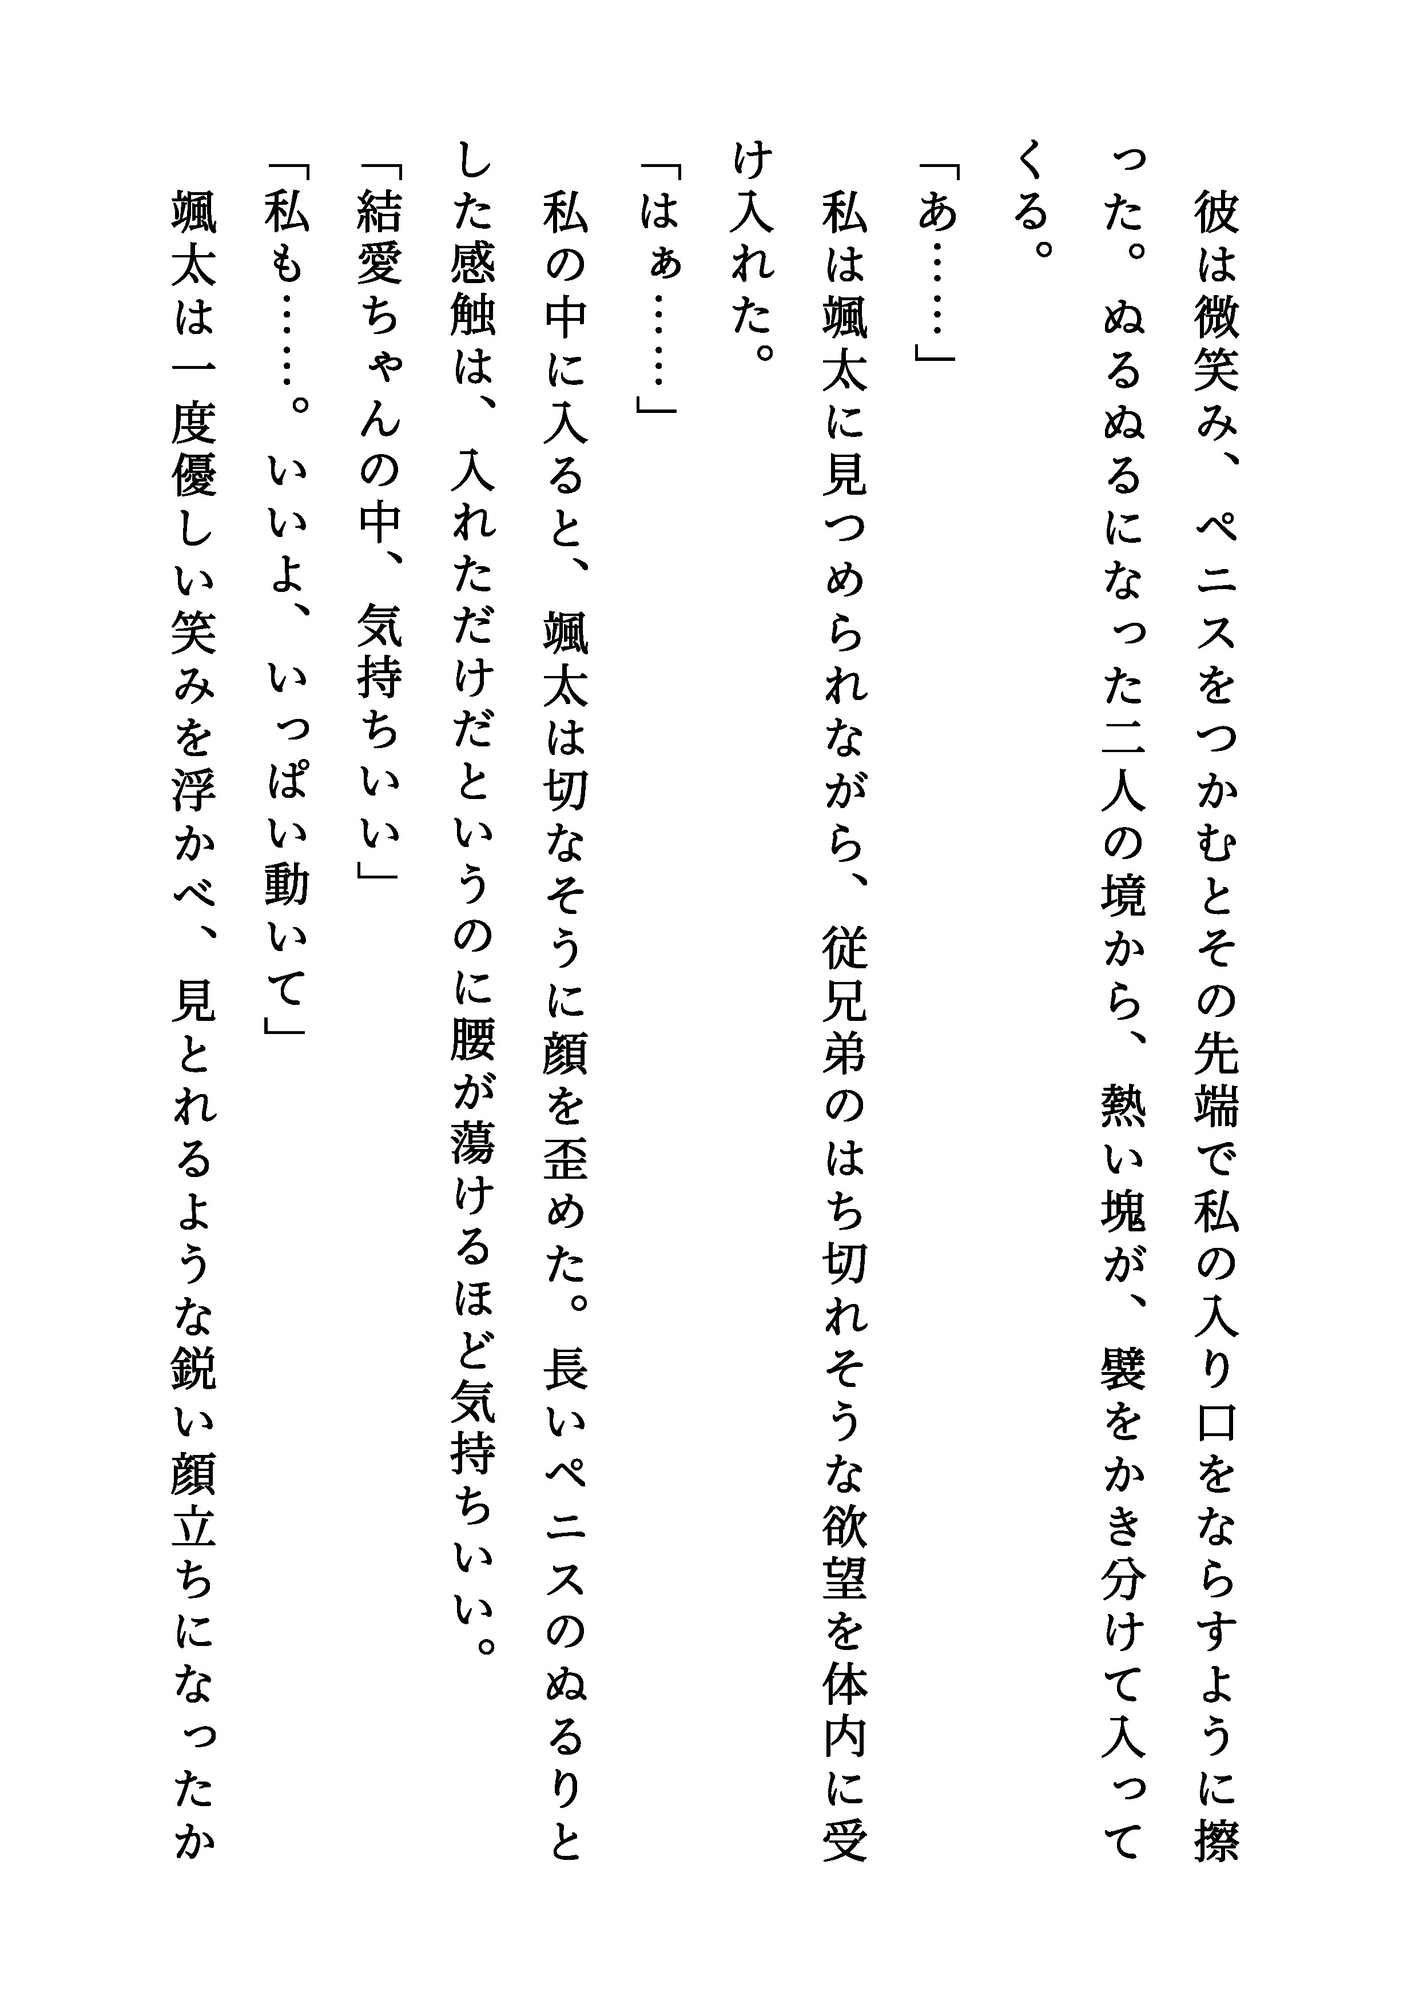 彼は微笑み、ペニスをつかむとその先端で私の入り口をならすように擦
った。ぬるぬるになった二人の境から、熱い塊が、襞をかき分けて入って
くる。
「あ……」
私は颯太に見つめられながら、従兄弟のはち切れそうな欲望を体内に受
け入れた。
「はぁ……」
私の中に入ると、颯太は切なそうに顔を歪めた。長いペニスのぬるりと
した感触は、入れただけだというのに腰が蕩けるほど気持ちいい。
「結愛ちゃんの中、気持ちいい」
「私も……。いいよ、いっぱい動いて」
颯太は一度優しい笑みを浮かべ、見とれるような鋭い顔立ちになったか